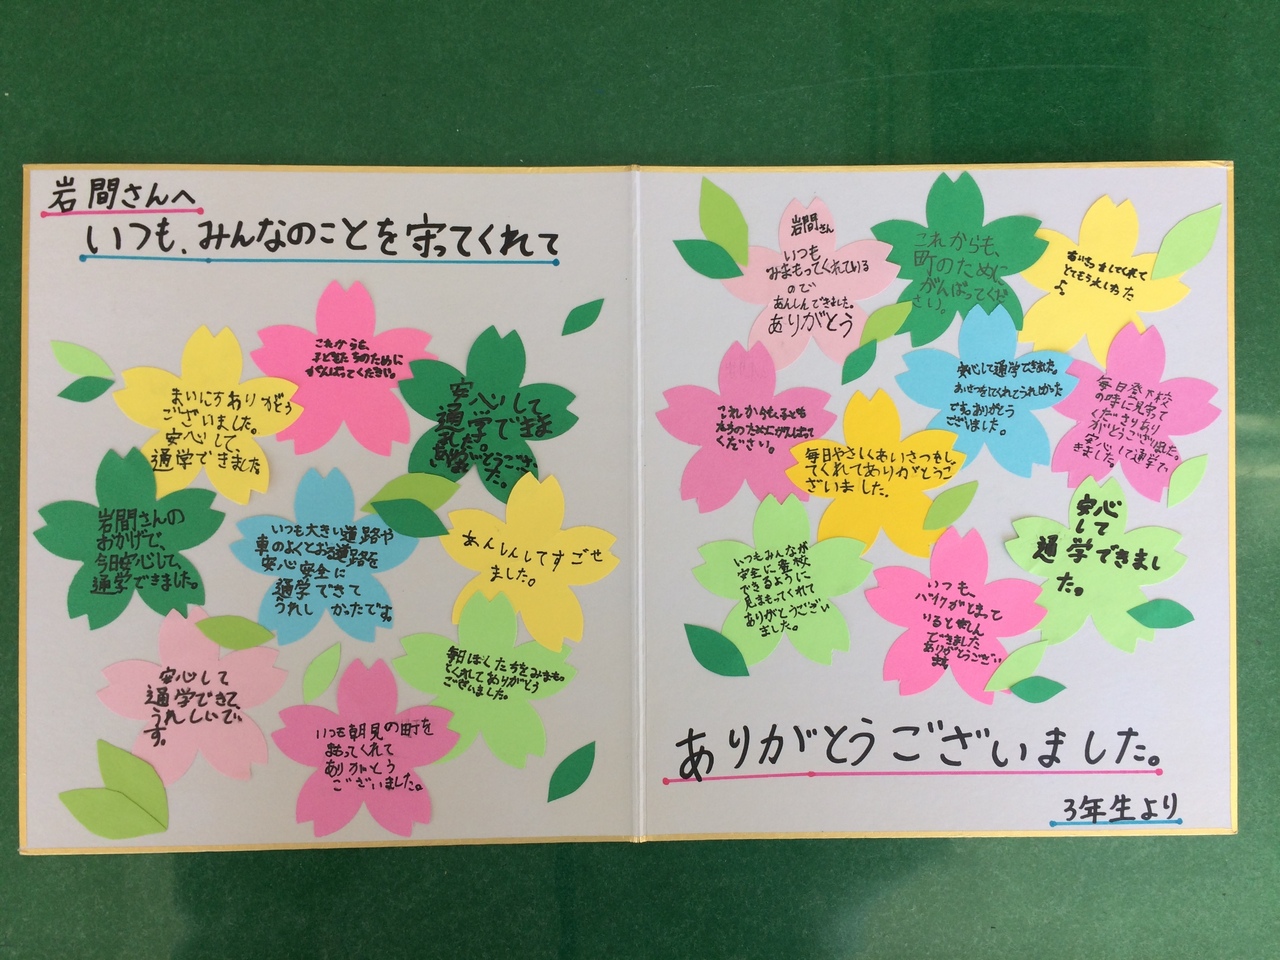 岩間さんへ
いつも、みんなのことを守ってくれて
これからも、
子どもたちのために
がんばってください。
まいにちありがとう
ございました。
安心して
通学できました
安心して
通学できま
した。
岩間さんの
おかげで、
今日安心して、
通学できました。
いつも大きい道路や
車のよくとおる道路を
安心安全に
通学できて
うれしかったです。
あんしんしてすごせ
ました。
安心して
通学できて
うれしいで
す。
毎日ぼくたちをみまも
ってくれてありがとう
ございました。
いつも朝見の町を
守ってくれて
ありがとう
ございました。
岩間さん
いつも
みまもってくれている
ので
あんしんできました。
ありがとう
これからも、
町のために
がんばってくだ
さい。
してくれて
とてもうれしかった
よ
安心して通学できました。
あいさつをしてくれてうれしかった
でもありがとう
ございました。
毎日登下校
の時に見守って
くださりあり
がとうございました。
安心して通学で
きました。
これからも、子ども
たちのためにがんばって
ください。
毎日やさしくあいさつもし
てくれてありがとうご
ざいました。
いつもみんなが
安全に登校
できるように
見まもってくれて
ありがとうござい
ました。
安心
して
通学できまし
た。
いつも、
バイクがとまって
いると安しん
できました
ありがとうござい
ます
ありがとうございました。
3年生より